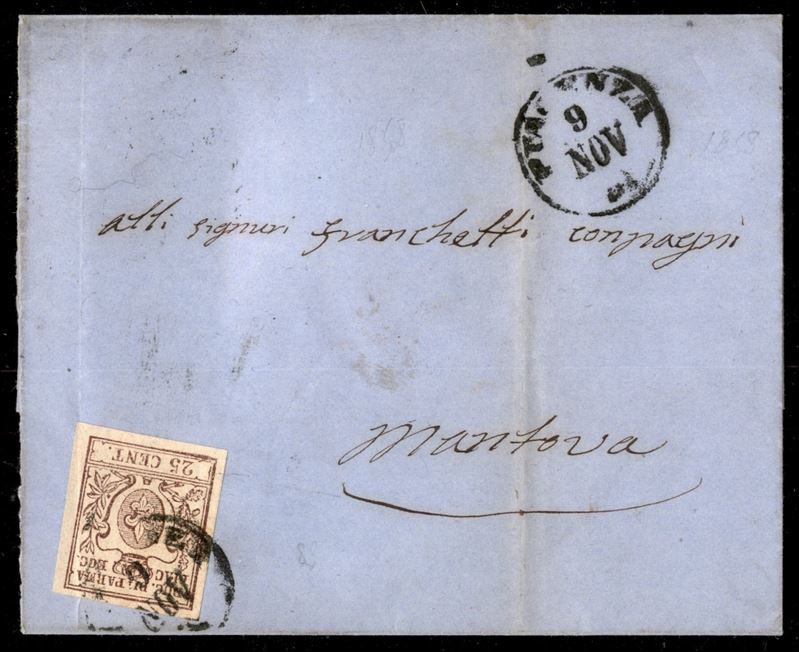 PIACENZA
9
NOV
1858
1858
alli Signuri Franchetti conpagni
Mantova
25 CENT.
DI PARMA
PIAC. ECC.
9
NOV